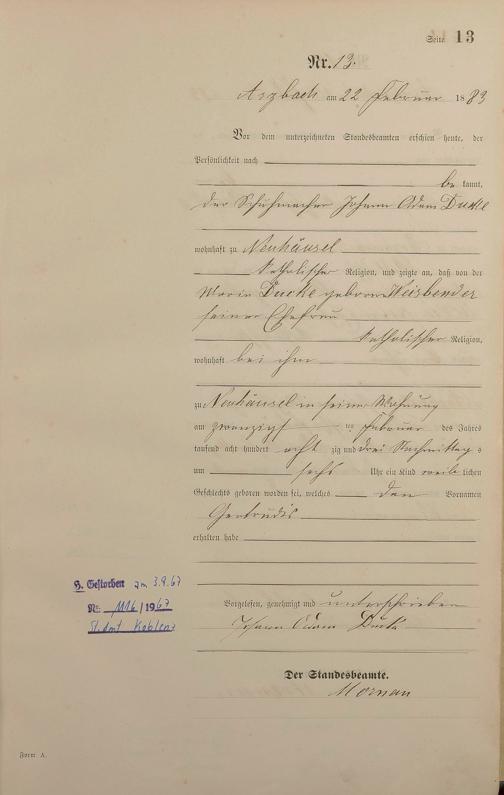 Seite 13
Nr. 13.
Arzbach am 22 Februar 1883
Vor dem unterzeichneten Standesbeamten erschien heute, der
Persönlichkeit nach
be kannt,
der Schuhmacher Johann Adam Ducke
wohnhaft zu Neuhäusel
katholischer Religion, und zeigte an, daß von der
Maria Ducke geborene Weisbender
seiner Ehefrau
katholischer Religion,
wohnhaft bei ihm
zu Neuhäusel in seiner Wohnung
am zwanzigsten Februar des Jahres
tausend acht hundert acht zig und drei Nachmittags
um sechs Uhr ein Kind weib lichen
Geschlechts geboren worden sei, welches den Vornamen
Gertrudis
erhalten habe
H. Gestorben am 3.9.67
Nr. 1116/1967
St. Amt Koblenz
Vorgelesen, genehmigt und unterschrieben
Johann Adam Ducke
Der Standesbeamte.
Form A.